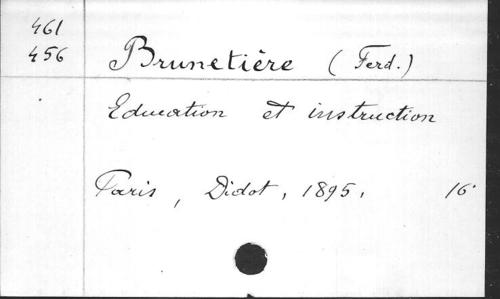 461
456 Brunetière (Ferd.)
Education et instruction
Paris, Didot, 1895, 16°